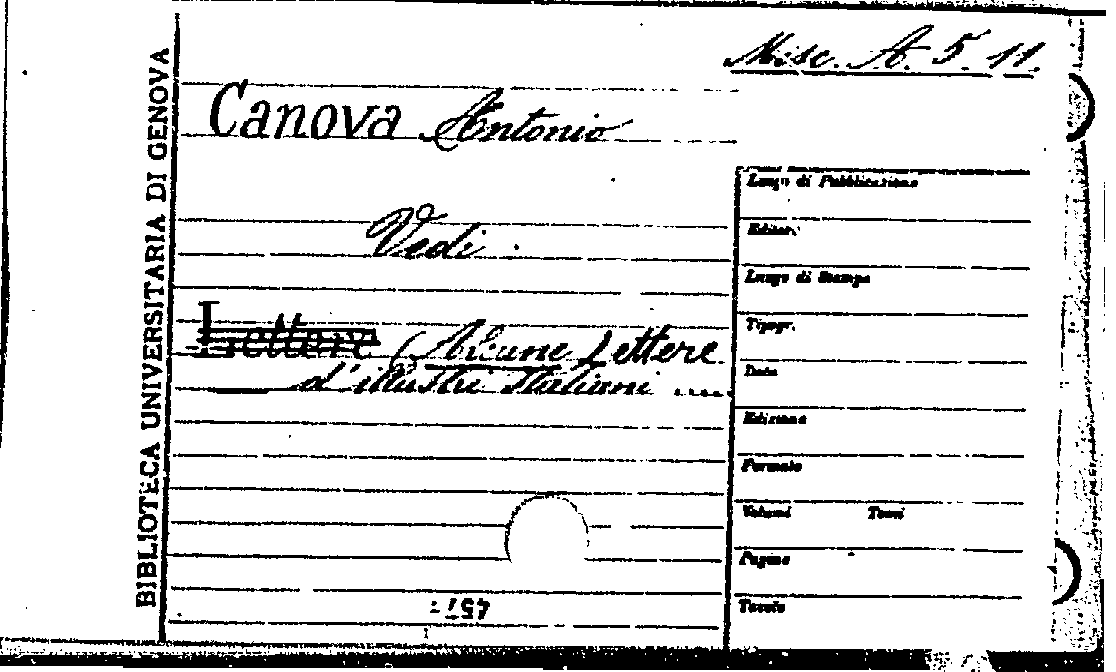 BIBLIOTECA UNIVERSITARIA DI GENOVA
Misc. A. 5. 11.
Canova Antonio
Vedi
Lettere (Alcune Lettere
d'illustri Italiani ....
Luogo di Pubblicazione
Editore
Luogo di Stampa
Tipogr.
Data
Edizione
Formato
Volumi Tomi
Pagine
Tavole